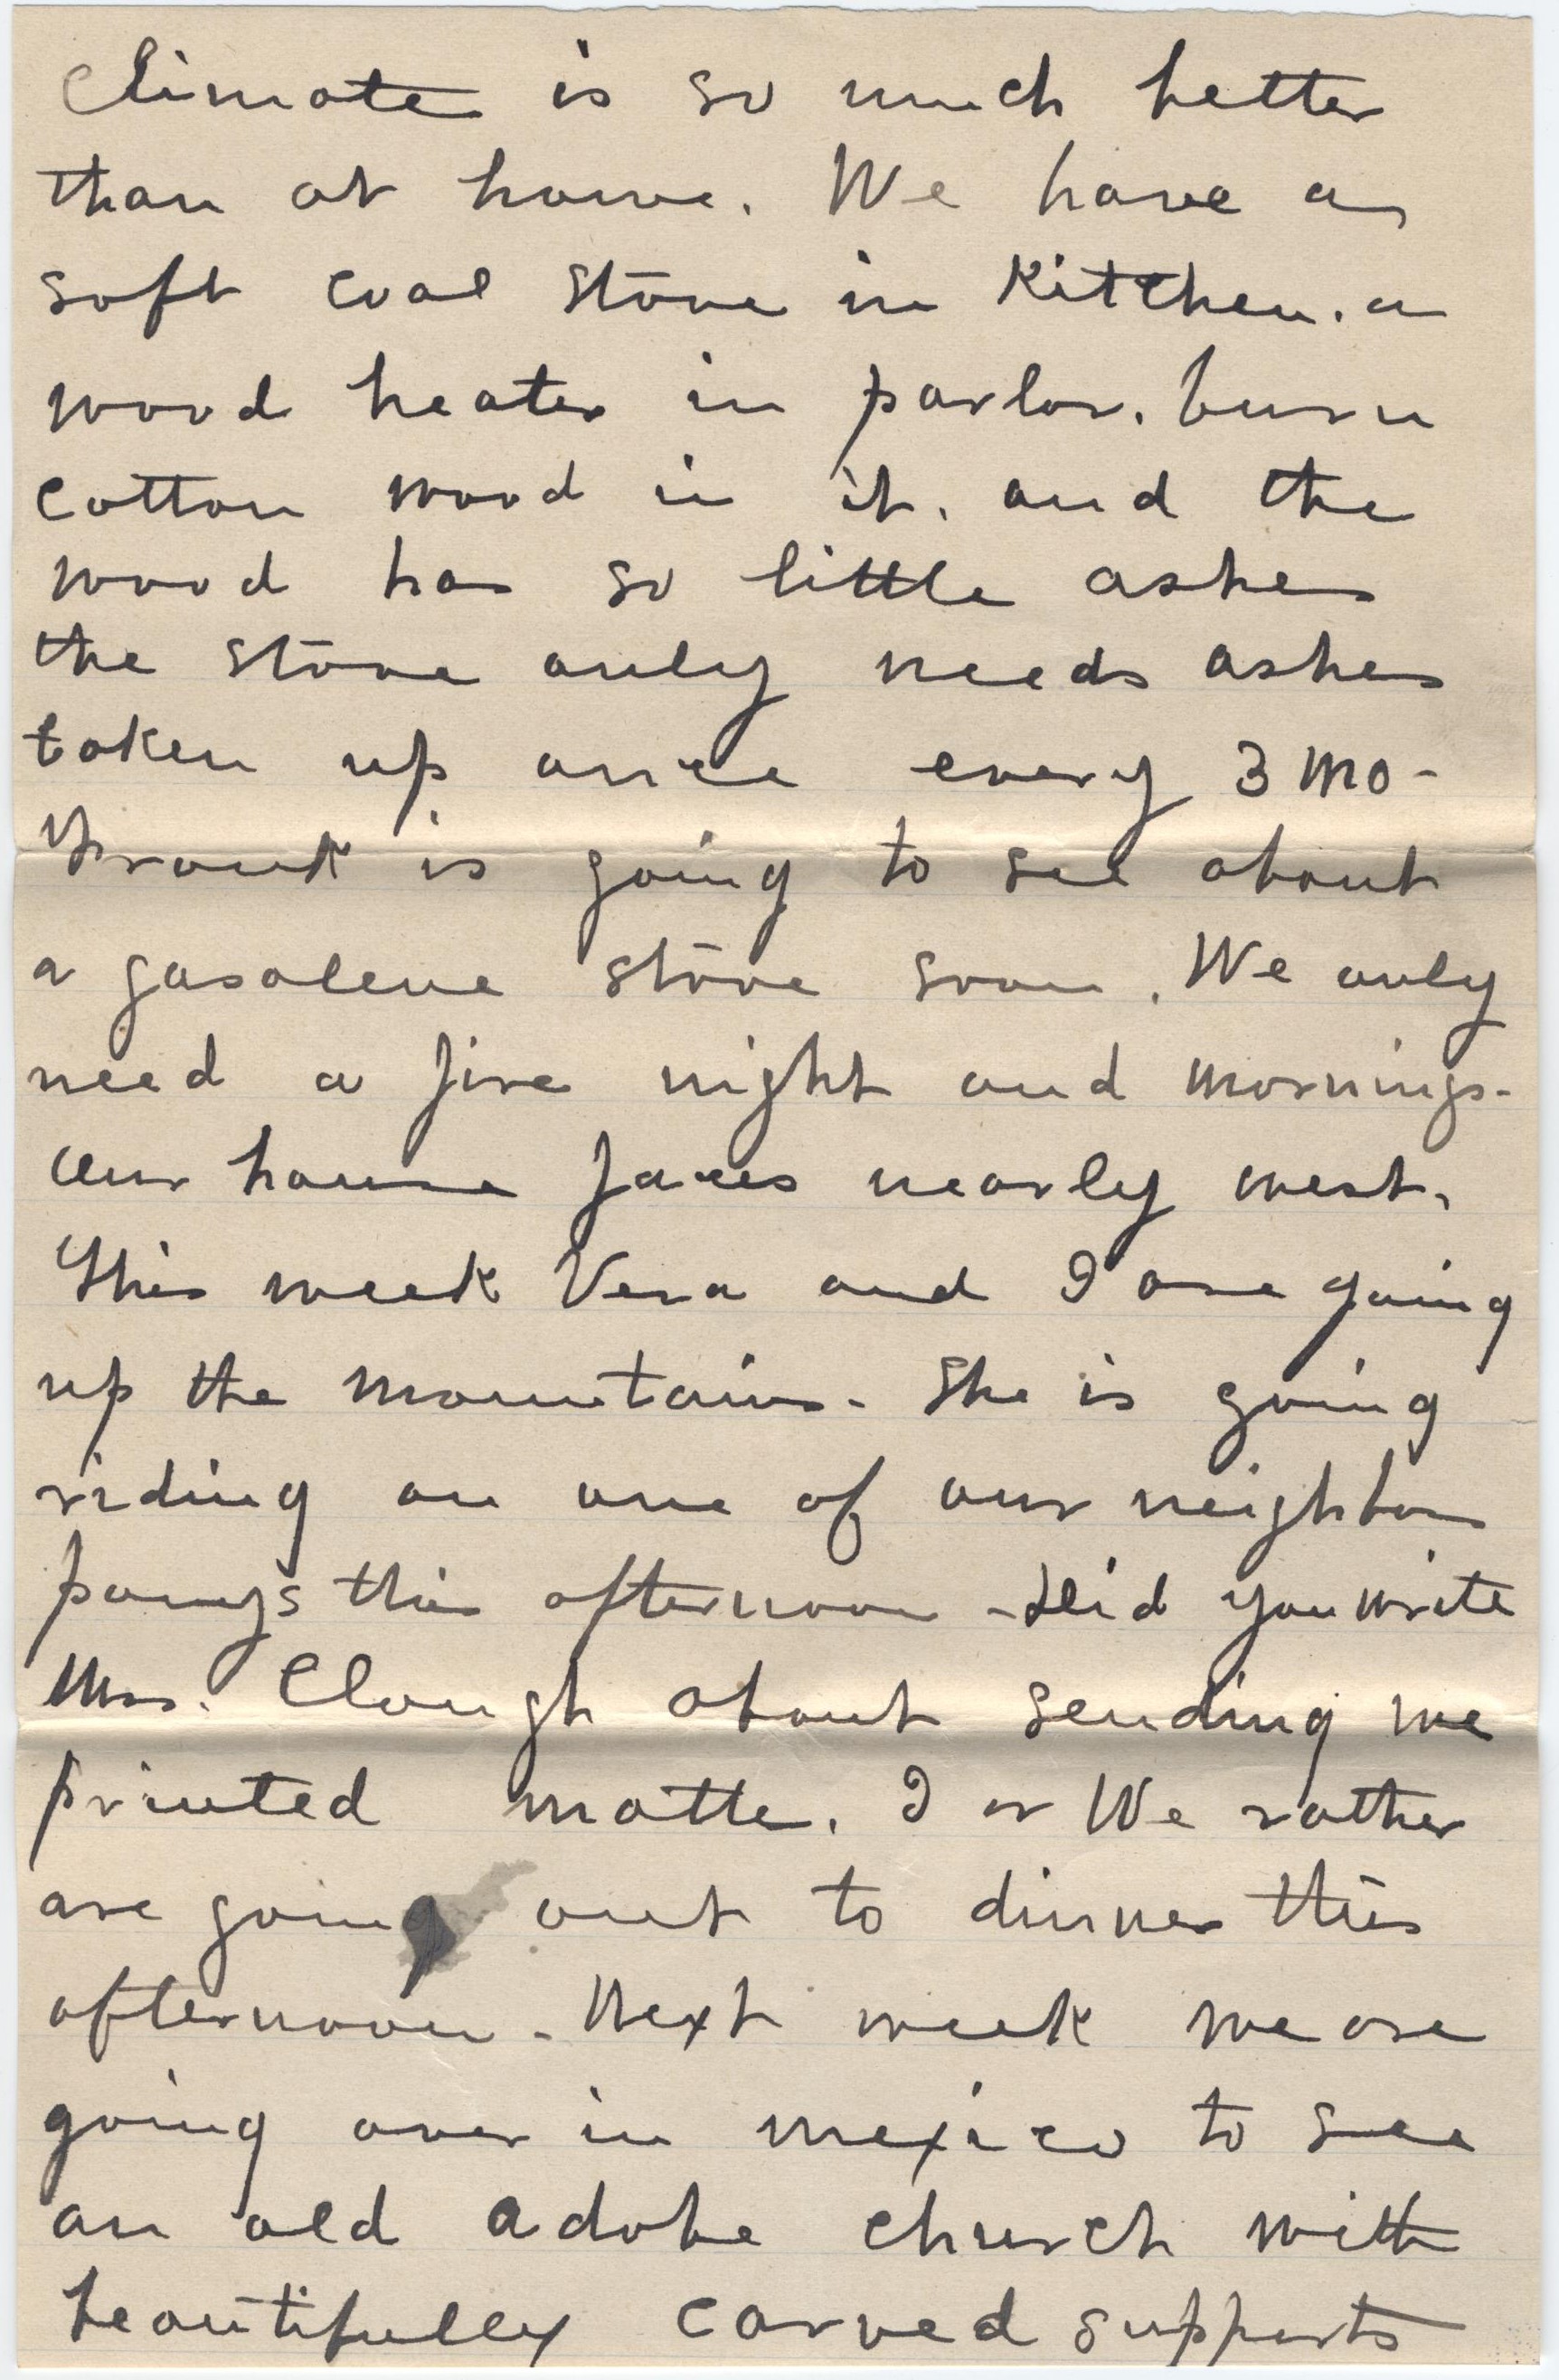 Climate is so much better
than at home. We have a
soft coal stove in Kitchen. a
wood heater in parlor. burn
cotton wood in it. and the
wood has so little ashes
the stove only needs ashes
taken up once every 3 mo-
Frank is going to see about
a gasolene stove soon. We only
need a fire night and mornings-
Our house faces nearly west.
This week Vera and I are going
up the mountains - She is going
riding on one of our neighbors
ponys this afternoon - Did you write
Mrs. Clough about sending me
printed matter. I or We rather
are going out to dinner this
afternoon - Next week we are
going over in mexico to see
an old adobe church with
beautifully carved supports